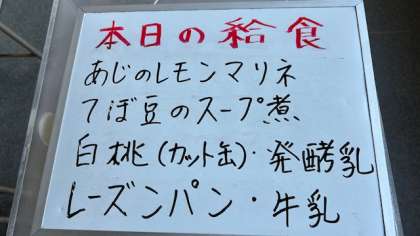 本日の給食
あじのレモンマリネ
てぼ豆のスープ煮
白桃(カット缶)・発酵乳
レーズンパン・牛乳